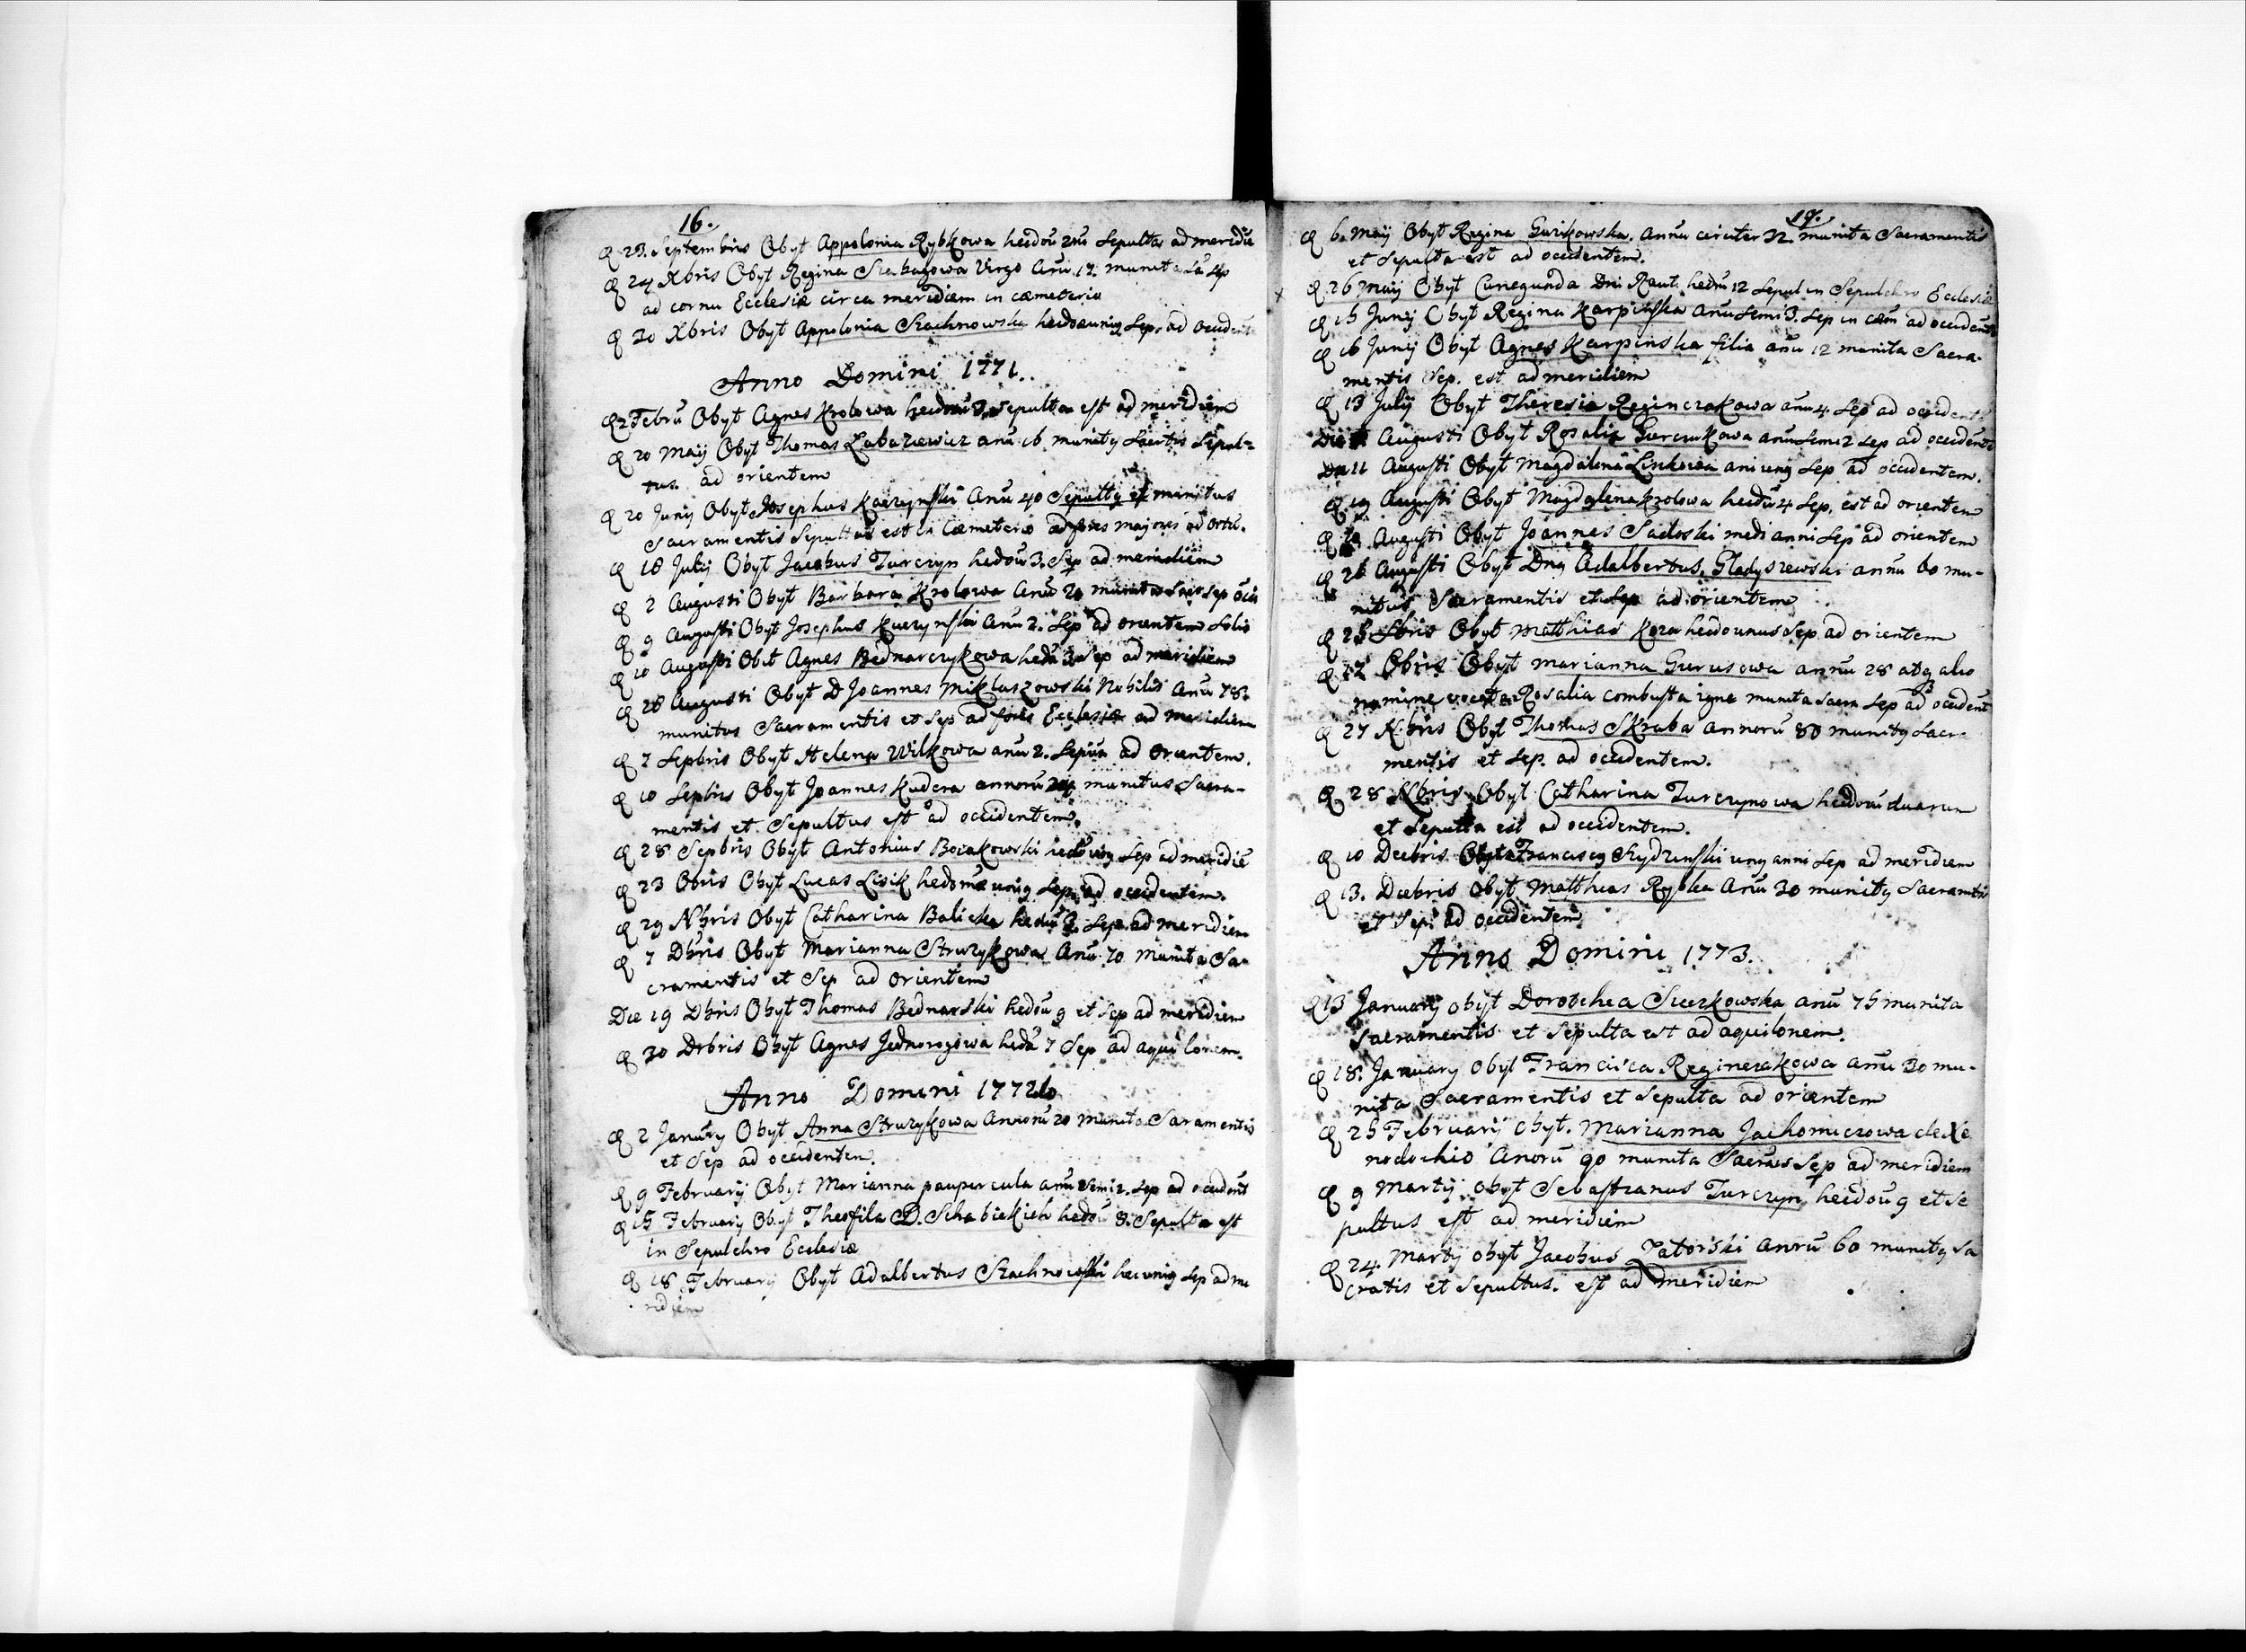 16.
23. Septembris Obyt Appolonia Rybkowa hebdou Sepulta ad meridie
24 Xbris Obyt Regina Virgo Anu. 17. munita Sa Sep
ad cornu Ecclesiæ circa meridiem in cæmeterio
30 Xbris Obyt Appolonia Stachnowska Sep. ad occident
Anno Domini 1771.
2 Febru Obyt Agnes Krolowa Sepulta est ad meridiem
20 Maij Obyt Thomas Labaziewicz anu 16 munitq Sepul-
tus. ad orientem
20 Junij Obyt Josephus Kaczynski Anu 40 Sepultq et munitus
Sacramentis Sepultus est in Cæmeterio ad fores majores ad ortu.
18 Julij Obyt Jacobus Turczyn hedou 3. Sep ad meridiem
2 Augusti Obyt Barbara Krolowa Anu 20 munita Sep
9 Augusti Obyt Josephus Kuczynski Anu 2. Sep ad orientem Solis
10 Augusti Obit Agnes Bednarczykowa heda 3 Sep ad meridiem
28 Augusti Obyt D Joannes Mikluszowski Nobilis Anu 78.
munitus Sacramentis et Sep ad fores Ecclesiæ ad meridiem
7 Sepbris Obyt Helena Wilkowa anu 2. ad Orientem.
10 Sepbris Obyt Joannes Kudera annoru 24 munitus Sacra-
mentis et Sepultus est ad occidentem.
28 Sepbris Obyt Antonius Borakowski Sep ad meridie
23 Obris Obyt Lucas Lisik hedomæ Sep. ad occidentem.
29 Nbris Obyt Catharina Balicka hedou 3. Sep. ad meridiem
7 Dbris Obyt Marianna Struzykowa Anu 70 munita Sa-
cramentis et Sep ad Orientem
Die 19 Dbris Obyt Thomas Bednarski hedou 9 et Sep ad meridiem
30 Drbris Obyt Agnes Jednorogowa heda 7 Sep ad aquilonem.
Anno Domini 1772do
2 Janury Obyt Anna Struzykowa Annoru 20 munita Saramentis
et Sep ad occidentem.
9 February Obyt Marianna paupercula anu Semi 2. Sep ad occident
15 February Obyt Theofila D. hedou 8. Sepulta est
in Sepulchro Ecclesiæ
18 February Obyt Adalbertus Stachnowski Sep ad me
ridiem
17.
6. Maij Obyt Regina Gurkowska. Annu circiter 32. munita Sacramentis
et Sepulta est ad occidentem.
26 Maij Obyt Cunegunda Dni Raut. hedu 12 Sepul in Sepulchro Ecclesiæ
15 Junij Obyt Regina Karpinska Anu Semi 3. Sep in cæm ad occidente
16 Junij Obyt Agnes Karpinska filia anu 12 munita Sacra-
mentis Sep. est ad meridiem
13 Julij Obyt Theresia Reginczakowa anu 4. Sep ad occident
Die Augusti Obyt Rosalia Gurczukowa anu Semi 2 Sep ad occidente
Die 11 Augusti Obyt Magdalena Linkowa ani unq Sep ad occidentem.
19 Augusti Obyt Magdalena Krolowa hedu 4 Sep. est ad orientem
Augusti Obyt Joannes Sadoski medi anni Sep ad orientem
26 Augusti Obyt Dnq Adalbertus Gladyszewski annu 60 mu-
nitus Sacramentis et Sep ad orientem
25 Obyt Matthias Koza hebdo unus Sep ad orientem
12 Obris Obyt Marianna Gurusowa annu 28 atq alio
nomine vocata Rosalia combusta igne munita Sacra Sep ad occident
27 Nbris Obyt Thomas Skraba annoru 80 munitq Sacr-
mentis et Sep. ad occidentem.
28 Nbris Obyt Catharina Turczynowa hedou duarum
et Sepulta est ad occidentem.
10 Decbris Obyt Franciscq unq anni Sep ad meridiem
13. Decbris Obyt Matthias Rybka Anu 30 munitq Sacramtis
et Sep. ad occidentem
Anno Domini 1773.
13 January Obyt Dorothea Sierkowska anu 75 munita
Sacramentis et Sepulta est ad aquilonem.
18. January Obyt Francisca Reginczakowa anu 30 mu-
nita Sacramentis et Sepulta ad orientem
25 Februarij Obyt. Marianna Jachomiczowa de Xe
nodochio Anoru 90 munita Sep ad meridiem
9 Martij Obyt Sebastianus Turczyn hedou 9 et Se
pultus est ad meridiem
24. Martij Obyt Jacobus Zatorski anoru 60 munitq Sa
cratis et Sepultus. est ad meridiem